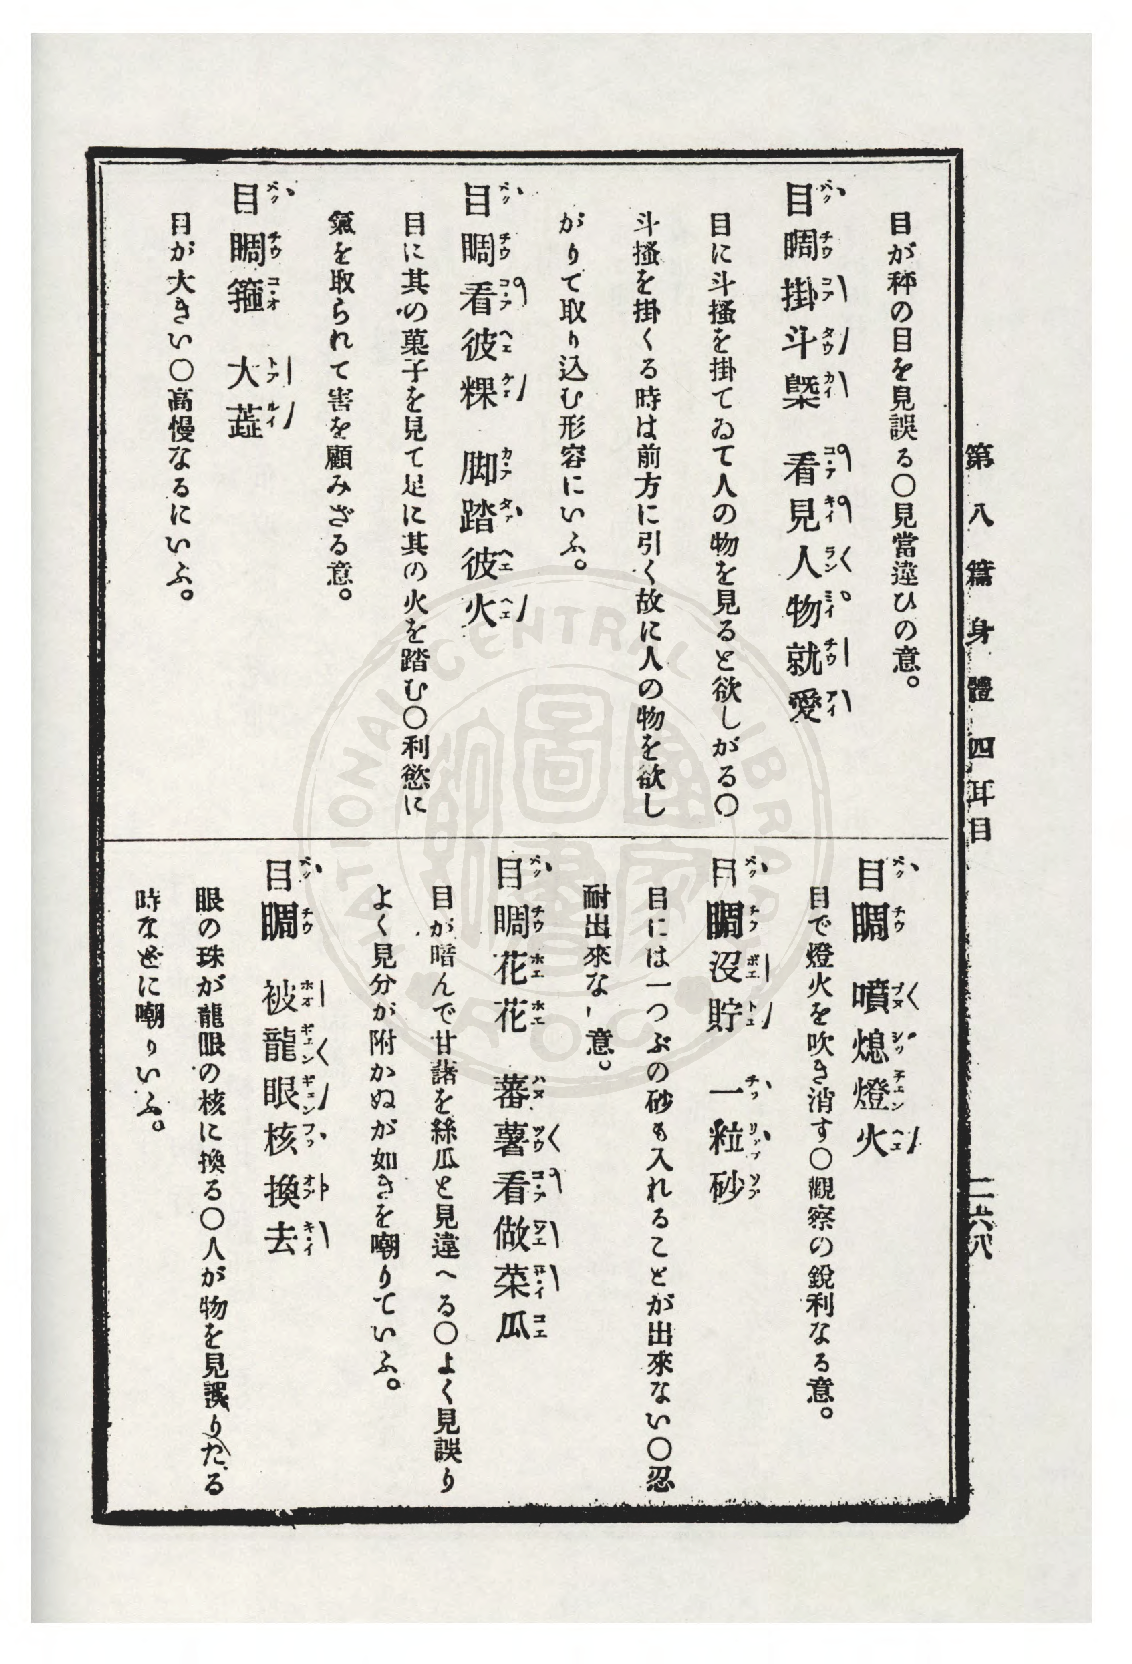 第八篇 身體 四耳目
二六八
目が秤の目を見誤る〇見當違ひの意。
目睭掛斗槩 看見人物就愛
目に斗搔を掛てゐて人の物を見ると欲しがる〇
斗搔を掛くる時は前方に引く故に人の物を欲し
がりて取り込む形容にいふ。
目睭看彼粿 脚踏彼火
目に其の菓子を見て足に其の火を踏む〇利慾に
氣を取られて害を顧みざる意。
目睭箍 大蕋
目が大きい〇高慢なるにいふ。
目睭 噴熄燈火
目で燈火を吹き消す〇觀察の銳利なる意。
目睭沒貯 一粒砂
目には一つぶの砂も入れることが出來ない〇忍
耐出來ない意。
目睭花花 蕃薯看做菜瓜
目が暗んで甘藷を絲瓜と見違へる〇よく見誤り
よく見分が附かぬが如きを嘲りていふ。
目睭 被龍眼核換去
眼の珠が龍眼の核に換る〇人が物を見誤りたる
時などに嘲りいふ。
NATIONAL CENTRAL LIBRARY
ROC
國家圖書館